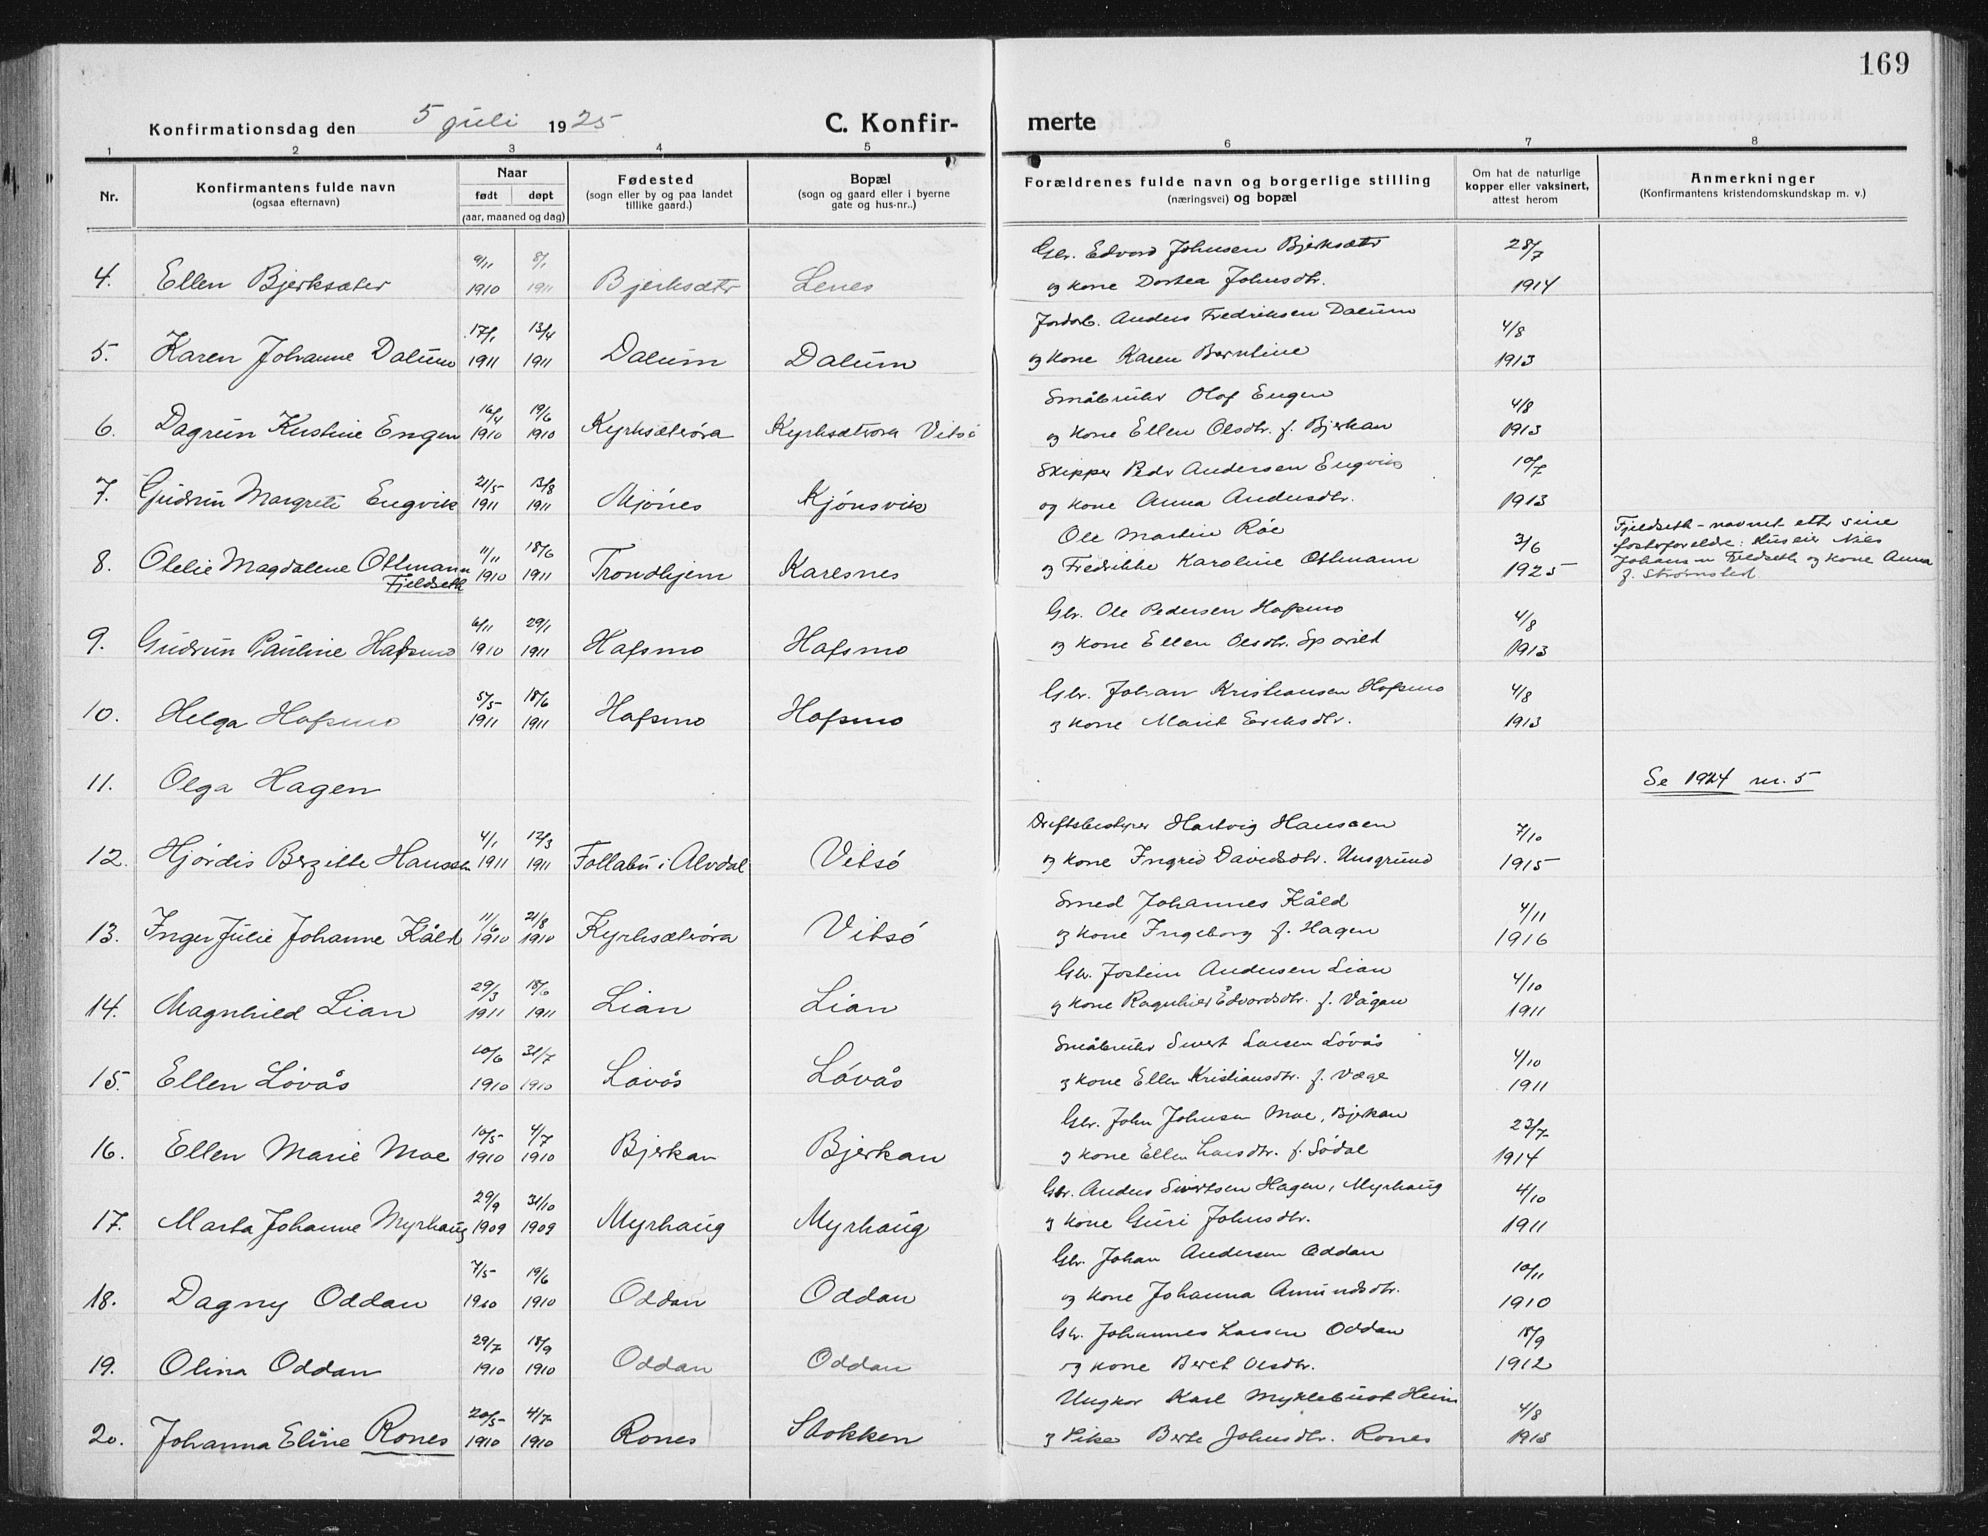 169
Konfirmationsdag den 5 juli 1925 C. Konfir- merte
1 2 3 4 5 6 7 8
Nr. Konfirmantens fulde navn (ogsaa efternavn) Naar født døpt (aar, maaned og dag) Fødested (sogn eller by og paa landet tillike gaard.) Bopæl (sogn og gaard eller i byerne gate og hus-nr..) Forældrenes fulde navn og borgerlige stilling (næringsvei) og bopæl Om hat de naturlige kopper eller vaksinert, attest herom Anmerkninger (Konfirmantens kristendomskundskap m. v.)
9/11 8/1 Gbr. Edvard Johnsen Bjerksæter 28/7
4. Ellen Bjerksæter 1910 1911 Bjerksæter Lenes og kone Dortea Johnsdtr. 1914
17/1 13/4 Jordbr. Anders Fredriksen Dalum 4/8
5. Karen Johanne Dalum 1911 1911 Dalum Dalum og kone Karen Berntine 1913
16/4 19/6 Småbruker Olof Engen 4/8
6. Dagrun Kristine Engen 1910 1910 Kyrksæterøra Kyrksæterøra Vitsø og kone Ellen Olsdtr. f. Bjerkan 1913
21/5 13/8 Skipper Peder Andersen Engvik 10/7
7. Gudrun Margrete Engvik 1911 1911 Mjønes Kjønsvik og kone Anna Andersdtr. 1913
11/11 18/6 Ole Martin Røe 3/6 Fjeldseth-navnet efter sine
8. Otelie Magdalene Ottmann 1910 1911 Trondhjem Karesnes og Fredrikke Karoline Ottmann 1925 fosterforeldre: Huseier Nils
Fjeldseth Johansen Fjeldseth og kone Anna
f. Strømsted
6/11 29/1 Gbr. Ole Pedersen Hafsmo 4/8
9. Gudrun Pauline Hafsmo 1910 1911 Hafsmo Hafsmo og kone Ellen Olsdtr. Spørild 1913
5/5 18/6 Gbr. Johan Kristiansen Hafsmo 4/8
10. Helga Hafsmo 1911 1911 Hafsmo Hafsmo og kone Marit Eriksdtr. 1913
11. Olga Hagen Se 1924 nr. 5
4/1 12/3 Driftsbestyrer Hartvig Hanssen 7/10
12. Hjørdis Berzitte Hanssen 1911 1911 Follabu i Alvdal Vitsø og kone Ingrid Davidsdtr. Unsgrund 1915
11/6 21/8 Smed Johannes Kåld 4/11
13. Inger Julie Johanne Kåld 1910 1910 Kyrksæterøra Vitsø og kone Ingeborg f. Hagen 1916
29/3 18/6 Gbr. Jostein Andersen Lian 4/10
14. Magnhild Lian 1911 1911 Lian Lian og kone Ragnhild Edvardsdtr. f. Vågan 1911
10/6 31/7 Småbruker Sivert Larsen Løvås 4/10
15. Ellen Løvås 1910 1910 Løvås Løvås og kone Ellen Kristiansdtr. f. Væge 1911
10/5 4/7 Gbr. John Johnsen Moe, Bjerkan 23/7
16. Ellen Marie Moe 1910 1910 Bjerkan Bjerkan og kone Ellen Larsdtr. f. Sødal 1914
29/9 31/10 Gbr. Anders Sivertsen Hagen, Myrhaug 4/10
17. Marta Johanne Myrhaug 1909 1909 Myrhaug Myrhaug og kone Guri Johnsdtr. 1911
7/5 19/6 Gbr. Johan Andersen Oddan 10/11
18. Dagny Oddan 1910 1910 Oddan Oddan og kone Johanna Amundsdtr. 1910
29/7 18/9 Gbr. Johannes Larsen Oddan 18/9
19. Olina Oddan 1910 1910 Oddan Oddan og kone Beret Olsdtr. 1912
20/5 4/7 Ungkar Karl Myklebust Heim 4/8
20. Johanna Eline Rones 1910 1910 Rones Stokken og Pike Berte Johnsdtr. Rones 1913